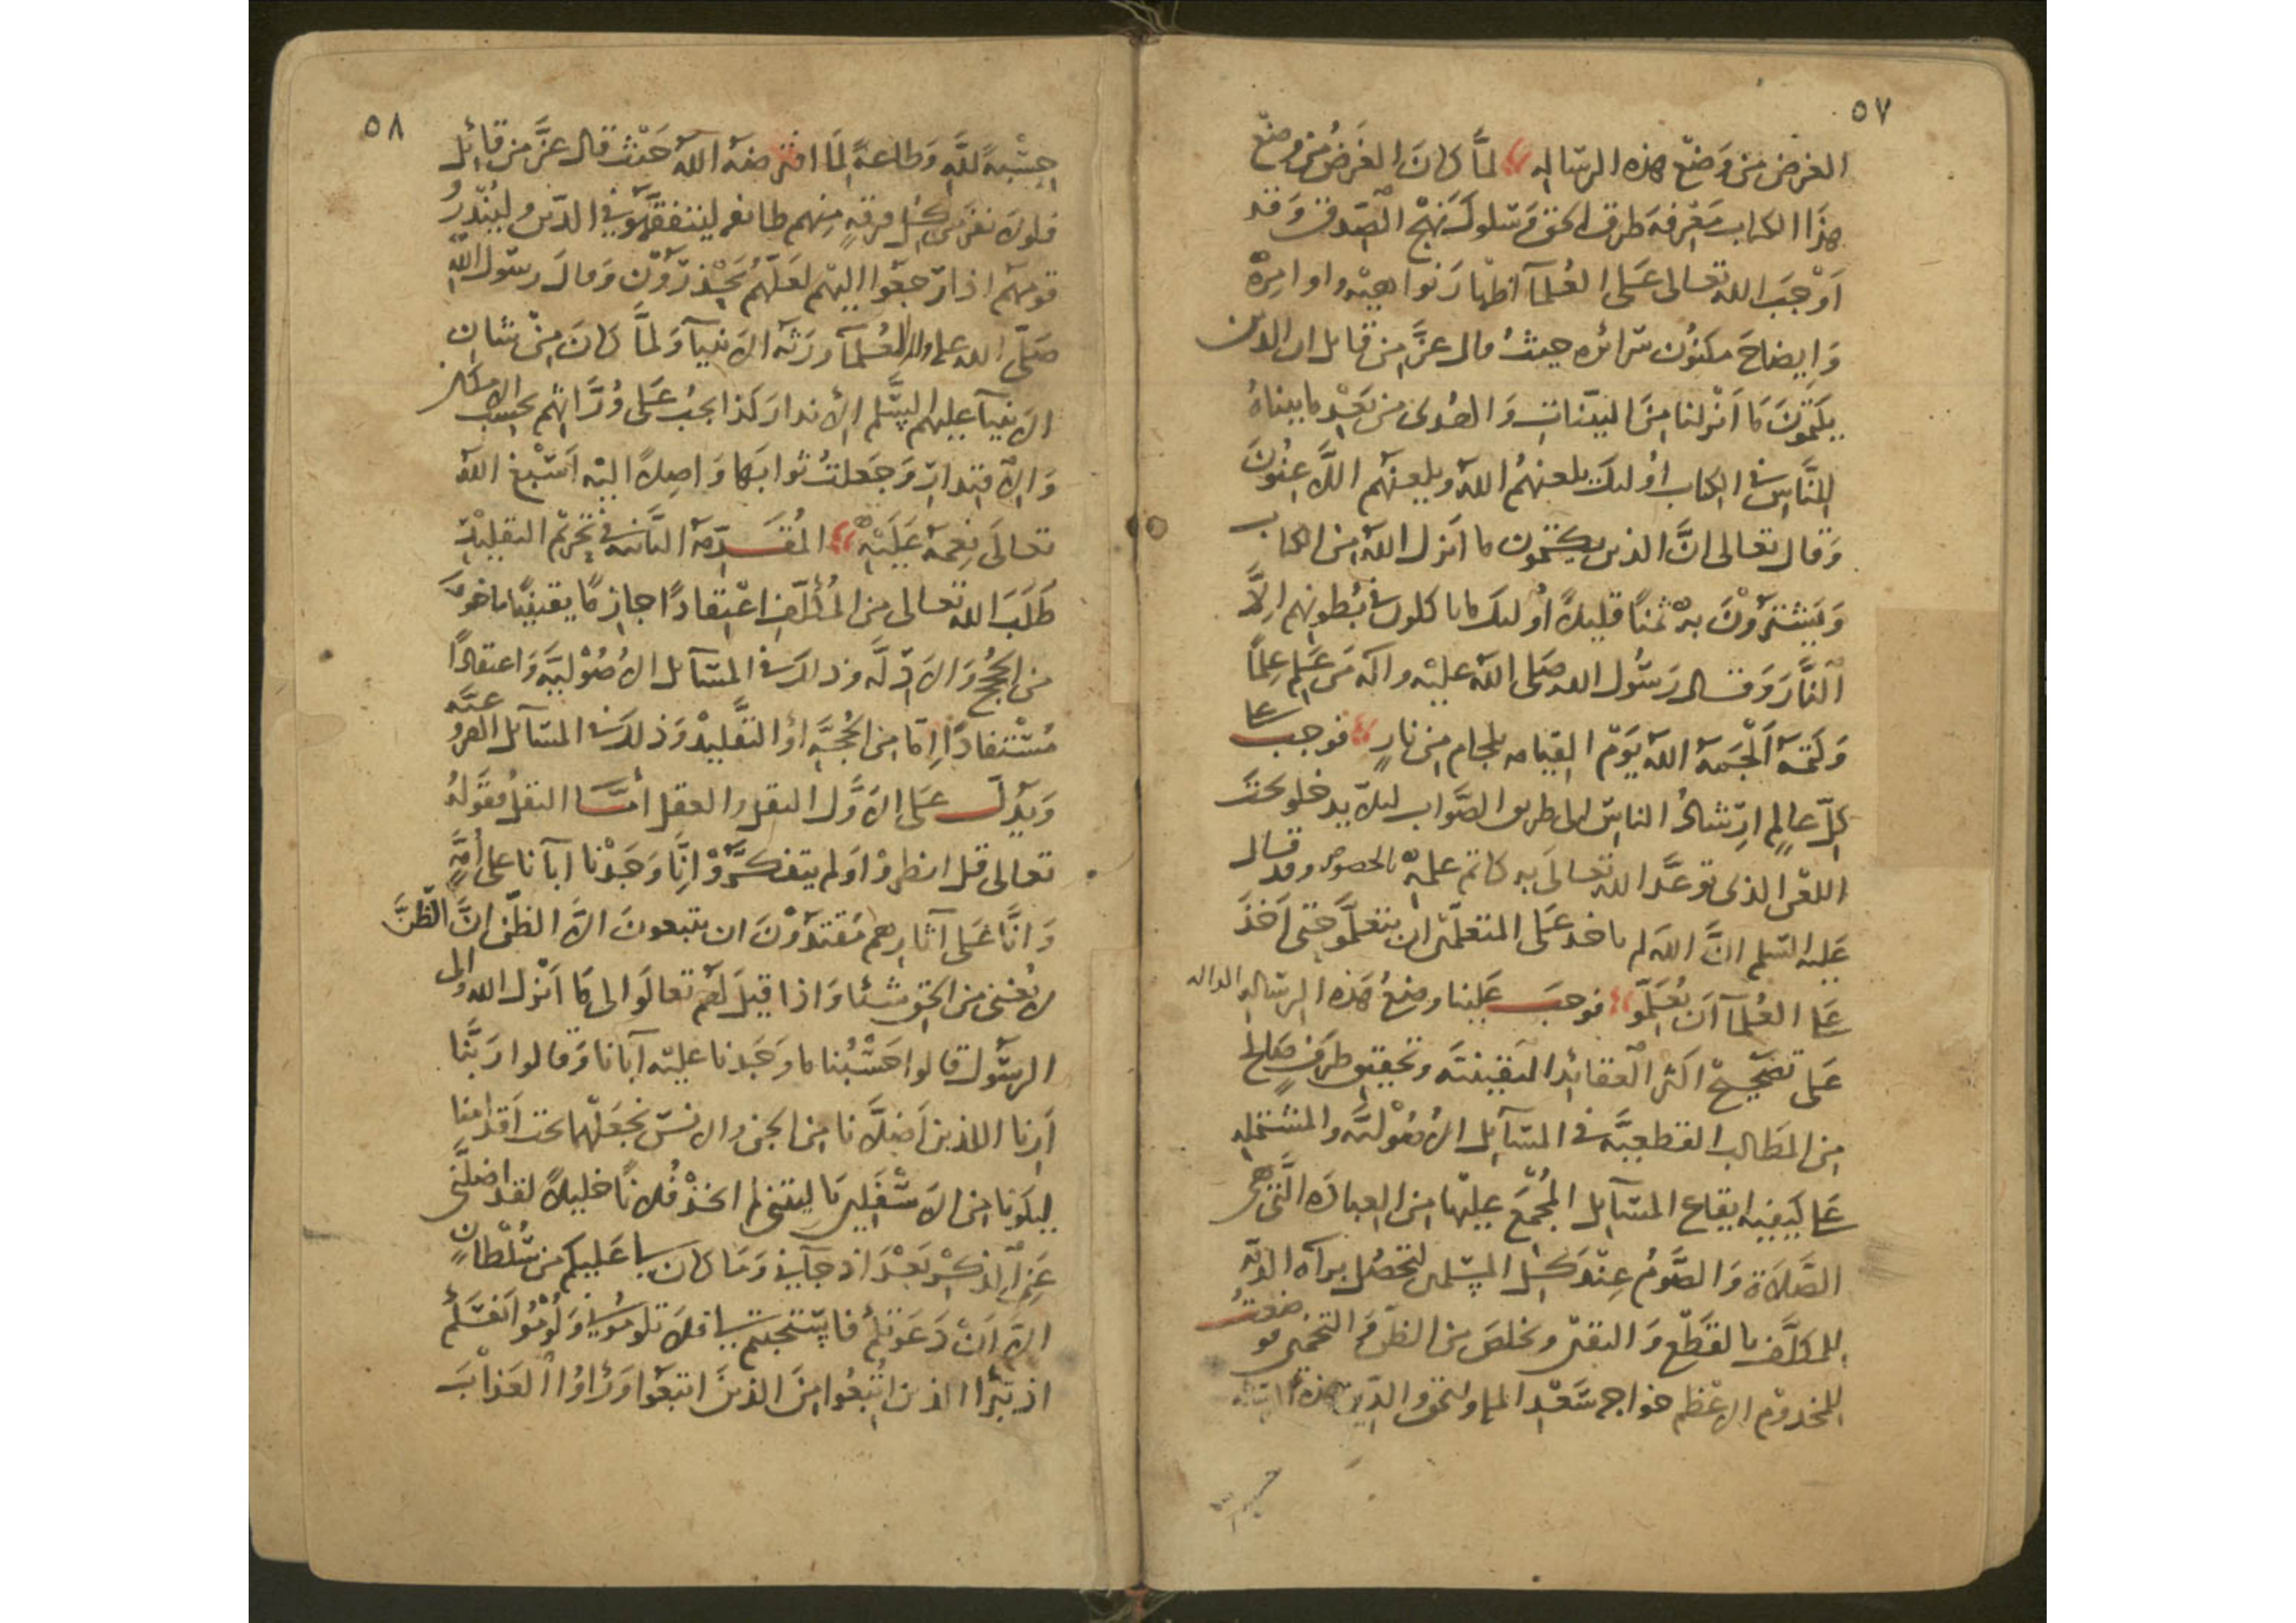 ٥٧
الغرض من وضع هذه الرساله لمَّا كانَ الغَرَضُ من وضع
هذَا الكتاب مَعْرفة طرق الحق وَسلوك نهج الصّدق وَقد
اَوْجَبَ الله تعالى عَلى العُلمآ اظهارَ نواهيه واوامِرهْ
وَايضاحَ مكنوُن سَرائره حيثُ قال عزَّ من قائل ان الذين
يكتمُونَ مَا اَنْزلنا مِنَ البيّناتِ وَالهُدى من بَعْدِ ما بيناهُ
للنَّاسِ في الكتاب اوُلئكَ يلعنهُم اللهُ ويلعنهُم اللَّاعِنوُنَ
وَقال تعالى انَّ الذين يكتمون ما انزل الله من الكتاب
وَيَشْترَوْنَ بهْ ثمنًا قليلاً اُولئك ما ياكلون في بُطونهم اِلاَّ
النَّارَ وَقال رَسُول الله صَلى الله عليْه واله مَن عَلِم عِلمًا
وَكتمَهُ اَلْجَمَهُ الله يَوْمَ القيامه بلجام مِن نارٍ فوجب على
كلِّ عالمٍ ارشادُ الناس الى طريق الصَّواب لئلاّ يدخلو تحت
اللعْن الذى توعَّد الله تعالَى به كاتم علمهْ بالخصوص وقد قال
عَليه السّلم انَّ الله لم ياخذ عَلى المتعلّمين ان يتعلَّمو حَتى اَخَذَ
عَلى العُلمآ اَن يُعَلِّمو فوجَبَ عَلينا وضعُ هَذه الرسَاله الداله
عَلى تصحيحْ اكثر العقائد اليَقينيَّه وتحقيق طرَفٍ صَالح
مِن المطَالب القطعيَّه في المسَآيل الاُصُوْليَّه والمشتمله
عَلى كيفيه ايقاع المسَآيل المُجْمَع عليْها مِن العبادَه الَّتى هى
الصَّلاَة وَالصَّومُ عِنْدَ كل المسلمين لتحصُل برآه الذمّه
للمكلَّف بالقَطْع وَاليقين ويخلصَ من الظنّ وَ التخمين فوضعتُ
للمخدوْم الاعْظم خواجه سَعْد الملة والحق والدّين هذه
٥٨
حِسْبةً للَّهِ وَطاعةً لمَا افترضهُ اللهُ حَيْث قال عزَّ من قائل
فلولاَ نفرَ من كل فرقةٍ مِنهم طائفه ليتفقَّهوُ في الدّين وليُنْذرُ
قومهم اذا رَجعُوا اليهم لعَلهُمْ يَحْذرَوْن وَقالَ رسَول الله
صَلى الله عليه واله العُلمآ ورَثه الاَنبيآ وَلمَّا كانَ مِنْ شان
الاَنبيآ عليهم السَّلم الاِنذارَ كذا يجبُ عَلى وُرَّاثهم بحسب الامكان
وَالاقتدار وَجَعلتُ ثوابَها وَاصِلاً اليْه اَسْبغ اللهُ
تعالَى نِعمهُ عَلَيْهْ المُقَدّمَة الثانيه في تحريْم التقليْدِ
طَلَبَ الله تعَالى من المُكلّف اعْتِقادًا جازِمًا يقينيًا ماخوذا
من الحُججْ وَالاَدِلَّه وذالك في المسَآئل الاُصُوْليَّه وَاعتقادًا
مُسْتَفادًا اِمّا مِن الحُجَّهِ اوْ التقليْد وَذلك في المسَآئل الفروعيَّه
وَيَدُلّ عَلى الاَوَّل النقل والعقل أمَّا النقلُ فقَوْلهُ
تعالى قل انظروْا اوَلم يتفكَّروْا اِنَّا وَجَدْنا ابآنا على اُمَّهٍ
وَاِنَّا عَلى آثارِهم مُقتدُوْنَ ان يتبعونَ الاَّ الظّن انَّ الظّنَّ
لا يُغنى من الحَق شيئا وَاذا قيلَ لهمْ تعالَوا الى مَا اَنزل الله والى
الرسُول قالوا حَسْبُنا ما وَجَدنا عليْه آبانا وَقالوا رَبَّنا
اَرِنا اللذين اَضلاَّنا مِن الجن والانسْ نجعَلهْما تحت اَقدامنا
ليكونا مِن الاَسْفَلين يَا ليتنى لم اتخذْ فُلانًا خليلاً لقد اضلَّنى
عَنِ الذكْر بَعْدَ اذ جآئنى وَمَا كان لى عَليكم من سُلْطانٍ
الاَّ اَنْ دَعَوْتكُمْ فاستجبتم لى فلا تلومُونى وَلُوْمُوْا اَنفسَكُمْ
اذ تبرَّأ الذين اتُّبعُوا مِنَ الذينَ اتبَعُوا وَرَاَوُا العَذابَ